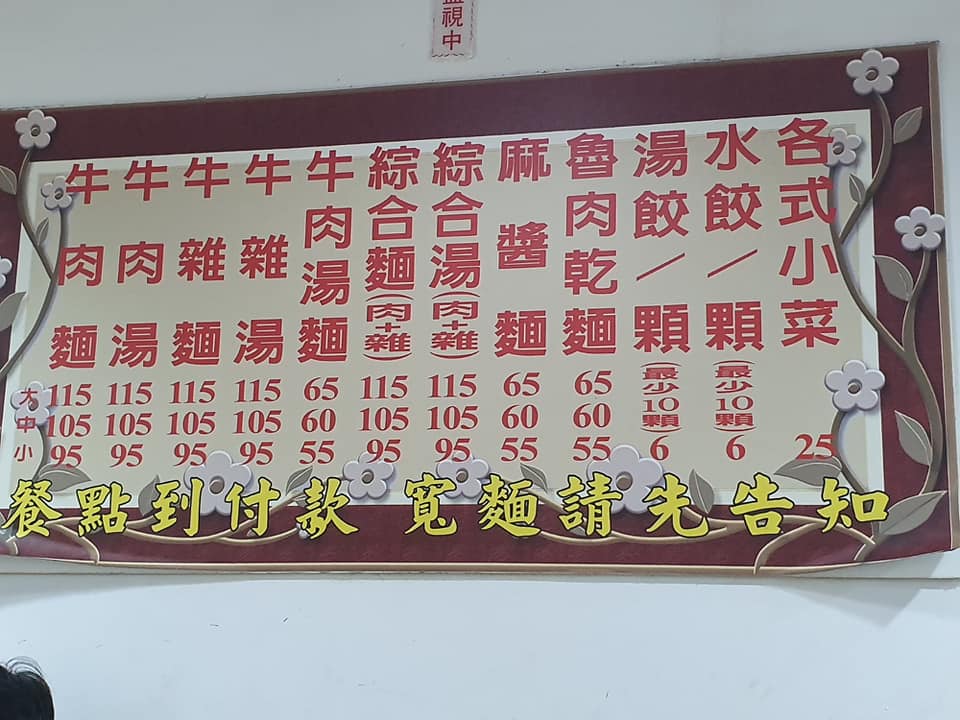 視中
牛肉麵 115 105 95
牛肉湯 115 105 95
牛雜麵 115 105 95
牛雜湯 115 105 95
牛肉湯麵 65 60 55
綜合麵(肉+雜) 115 105 95
綜合湯(肉+雜) 115 105 95
麻醬麵 65 60 55
魯肉乾麵 65 60 55
湯餃/顆(最少10顆) 6
水餃/顆(最少10顆) 6
各式小菜 25
大
中
小
餐點到付款 寬麵請先告知